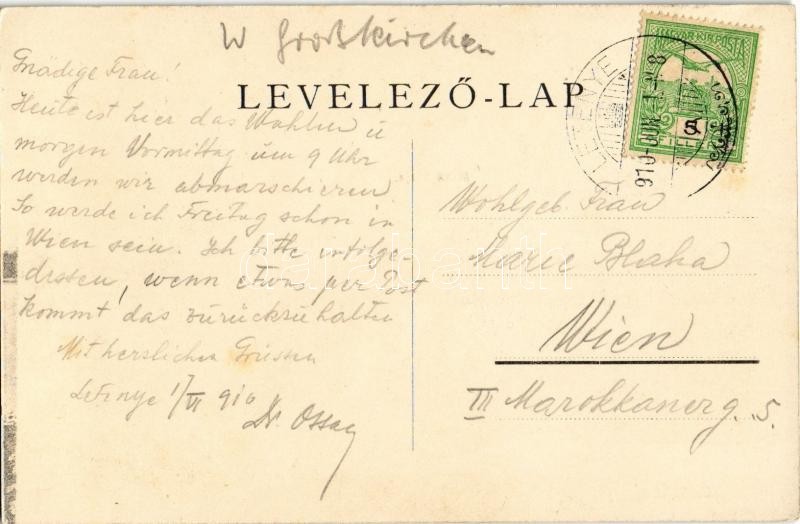 W Großkirchen
LEVELEZŐ-LAP
MAGYAR KIR. POSTA
5
FILLÉR
LETENYE
910 JUN
Gnädige Frau!
Heute ist hier das Wahlen u
morgen Vormittag um 9 Uhr
werden wir abmarschieren
So werde ich Freitag schon in
Wien sein. Ich bitte infolge-
dessen, wenn etwas per Post
kommt das zurückzuhalten
Mit herzlichen Grüssen
Letenye 1/VI 910
Dr. Ossay
Wohlgeb Frau
Marie Blaha
Wien
III Marokkanerg. 5.
darabanth